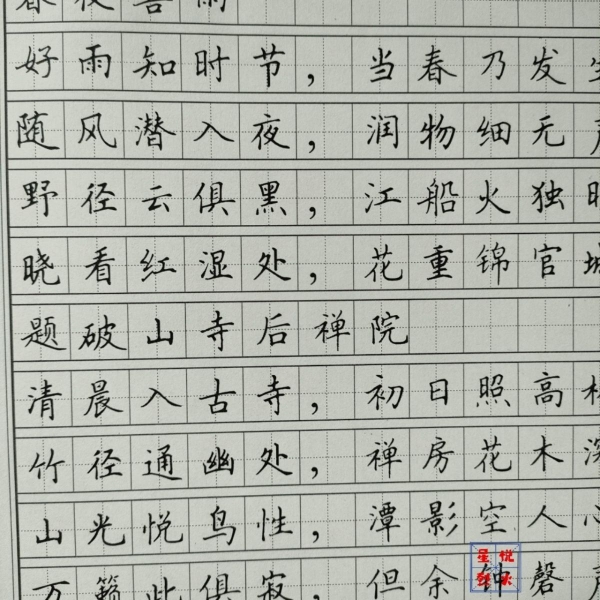 春夜喜雨
好雨知时节，当春乃发生
随风潜入夜，润物细无声
野径云俱黑，江船火独明
晓看红湿处，花重锦官城
题破山寺后禅院
清晨入古寺，初日照高林
竹径通幽处，禅房花木深
山光悦鸟性，潭影空人心
万籁此俱寂，但余钟磬声